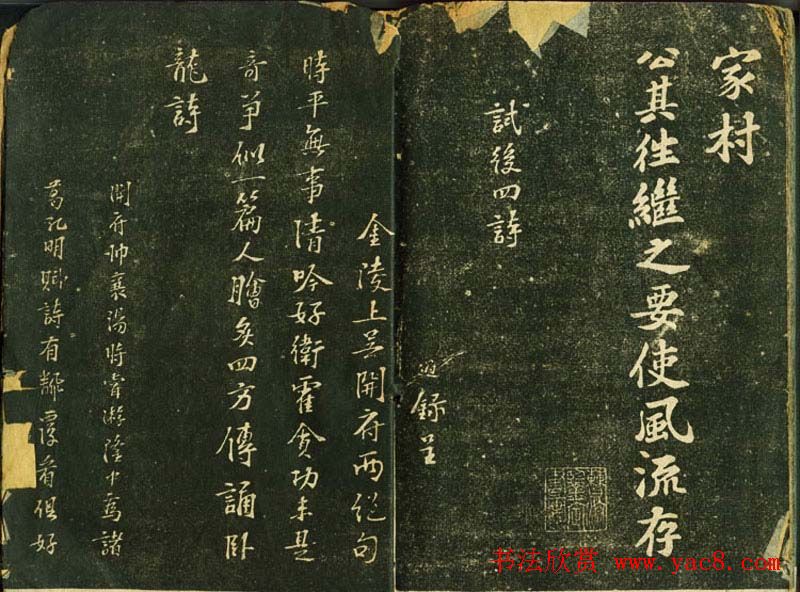 家村
公其往繼之要使風流存
試後四詩
迥錄呈
金陵上吳開府兩絕句
時平無事清吟好衛霍貪功未是
奇爭似一篇人膾炙四方傳誦卧
龍詩
開府帥襄陽時嘗游隆中為諸
葛孔明賦詩有躬淳看但好
书法欣赏 www.yac8.com